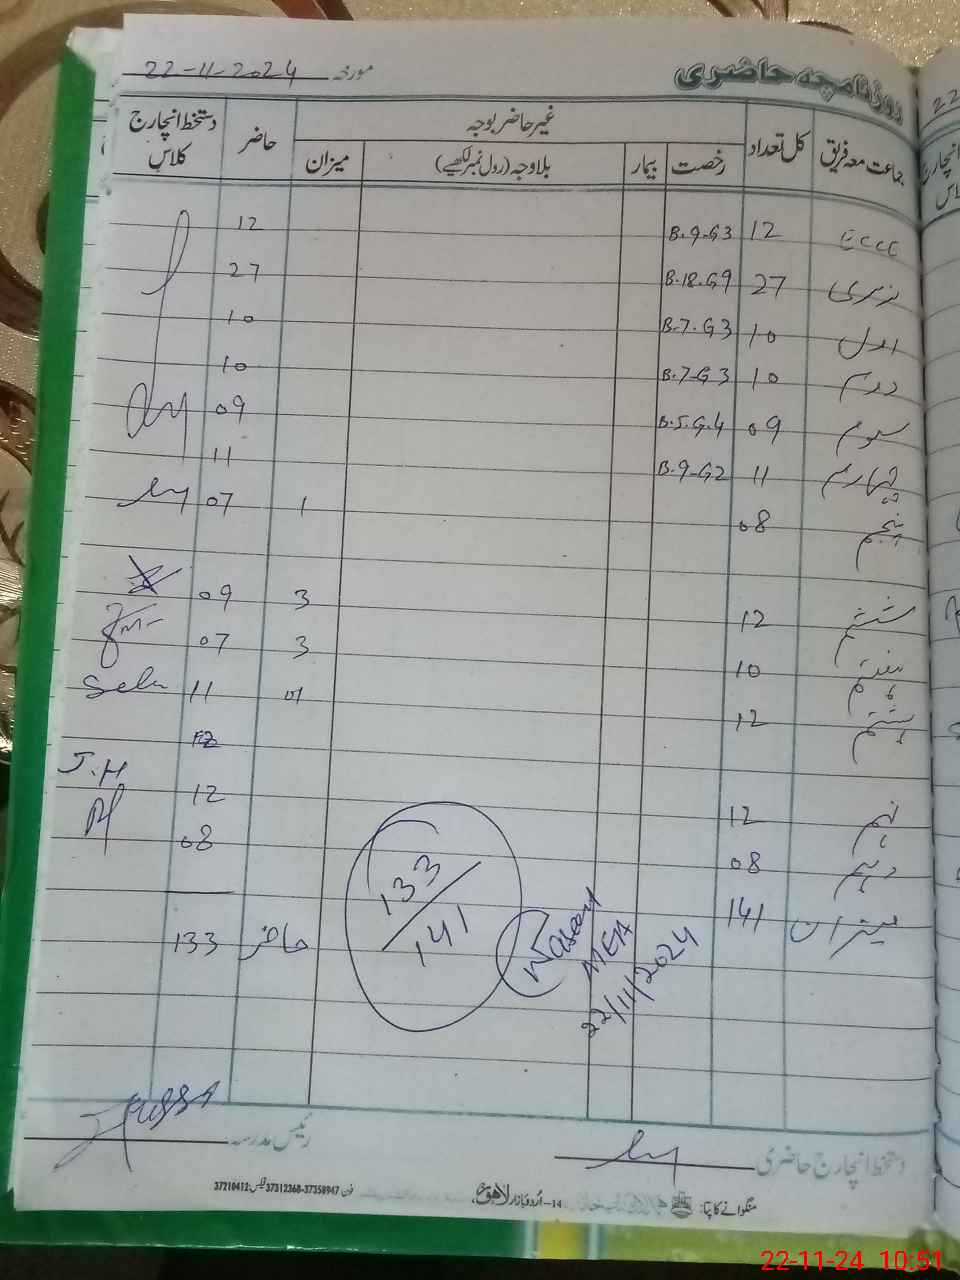 روزنامچہ حاضری مورخہ 22-11-2024
جماعت معہ فریق کل تعداد غیر حاضر بوجہ حاضر دستخط انچارج کلاس
رخصت بیمار بلاوجہ (رول نمبر لکھیے) میزان
ECCE 12 B.9-G3 12
نرسری 27 B.18.G9 27
اول 10 B.7.G3 10
دوئم 10 B.7-G3 10
سوم 09 B.5.G.4 09
چہارم 11 B.9-G2 11
پنجم 08 1 07
ششم 12 3 09
ہفتم 10 3 07
ہشتم 12 01 11
J.H
نہم 12 12
دہم 08 08
میزان 141
133
141
حاضر 133
Naseem
MEA
22/11/2024
دستخط انچارج حاضری رئیس مدرسہ
منگوانے کا پتا: 14-اُردو بازار لاہور، فون 37358947-37312368 فیکس: 37210412
22-11-24 10:51